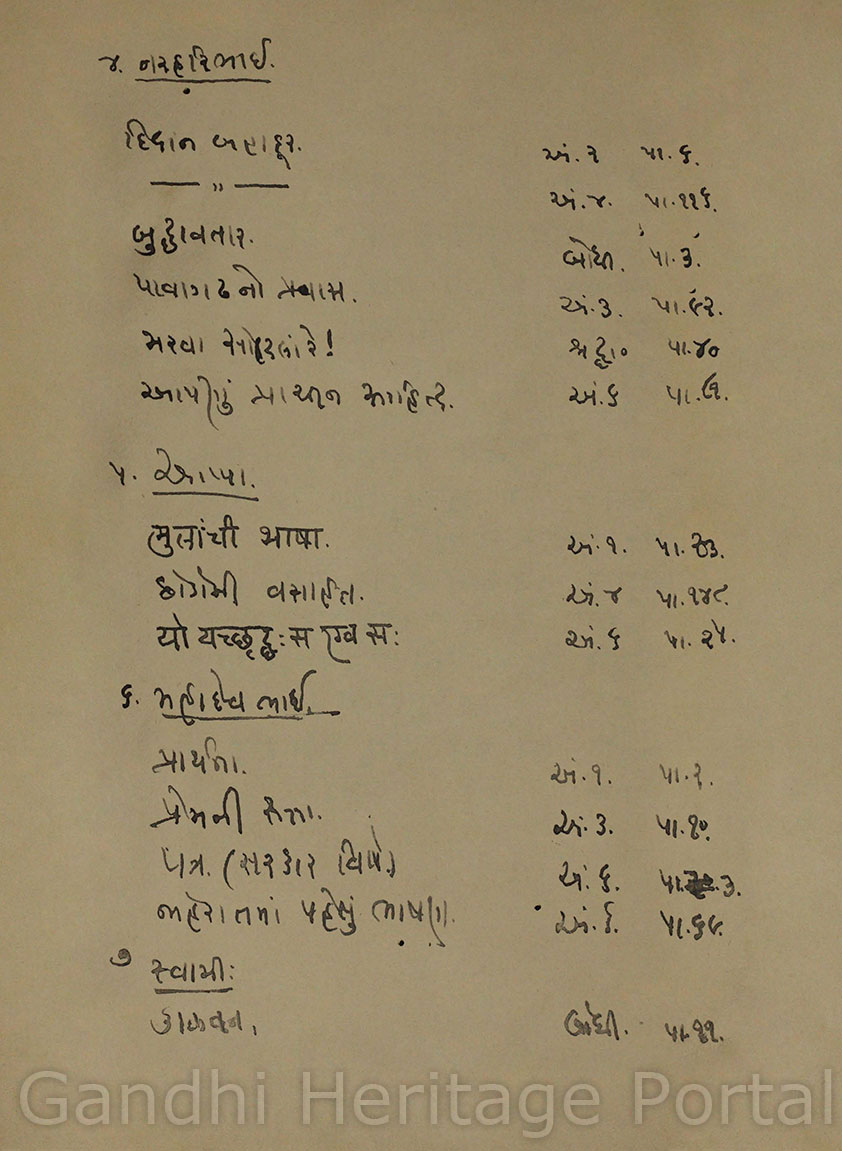 ૪. નરહરિભાઈ.
દિવાન બહાદૂર. અં. ૨ પા. ૬.
—— ,, —— અં. ૪. પા. ૧૧૬.
બુદ્ધાવતાર. બોધી. પા. ૩.
પાવાગઢનો પ્રવાસ. અં. ૩. પા. ૬૨.
મરવા રે! શ્રદ્ધા૦ પા. ૪૦
આપણું પ્રાચીન સાહિત્ય. અં. ૬ પા. ૭.
૫. આપા.
મુલાંચી भाषा. અં. ૧. પા. ૩.
વસાહત. અં. ૪ પા. ૧૪૯.
यो यच्छ्रद्धः स एव सः અં. ૬ પા. ૨૫.
૬. મહાદેવ ભાઈ.
પ્રાર્થના. અં. ૧. પા. ૨.
પ્રેમની અં. ૩. પા. ૧૦.
પત્ર. (સરકાર વિષે.) અં. ૬. પા. ૩.
પહેલું ભાષણ. અં. ૬. પા. ૬૯.
૭ સ્વામી:
કાળવન. બોધી. પા. ૧૧.
Gandhi Heritage Portal